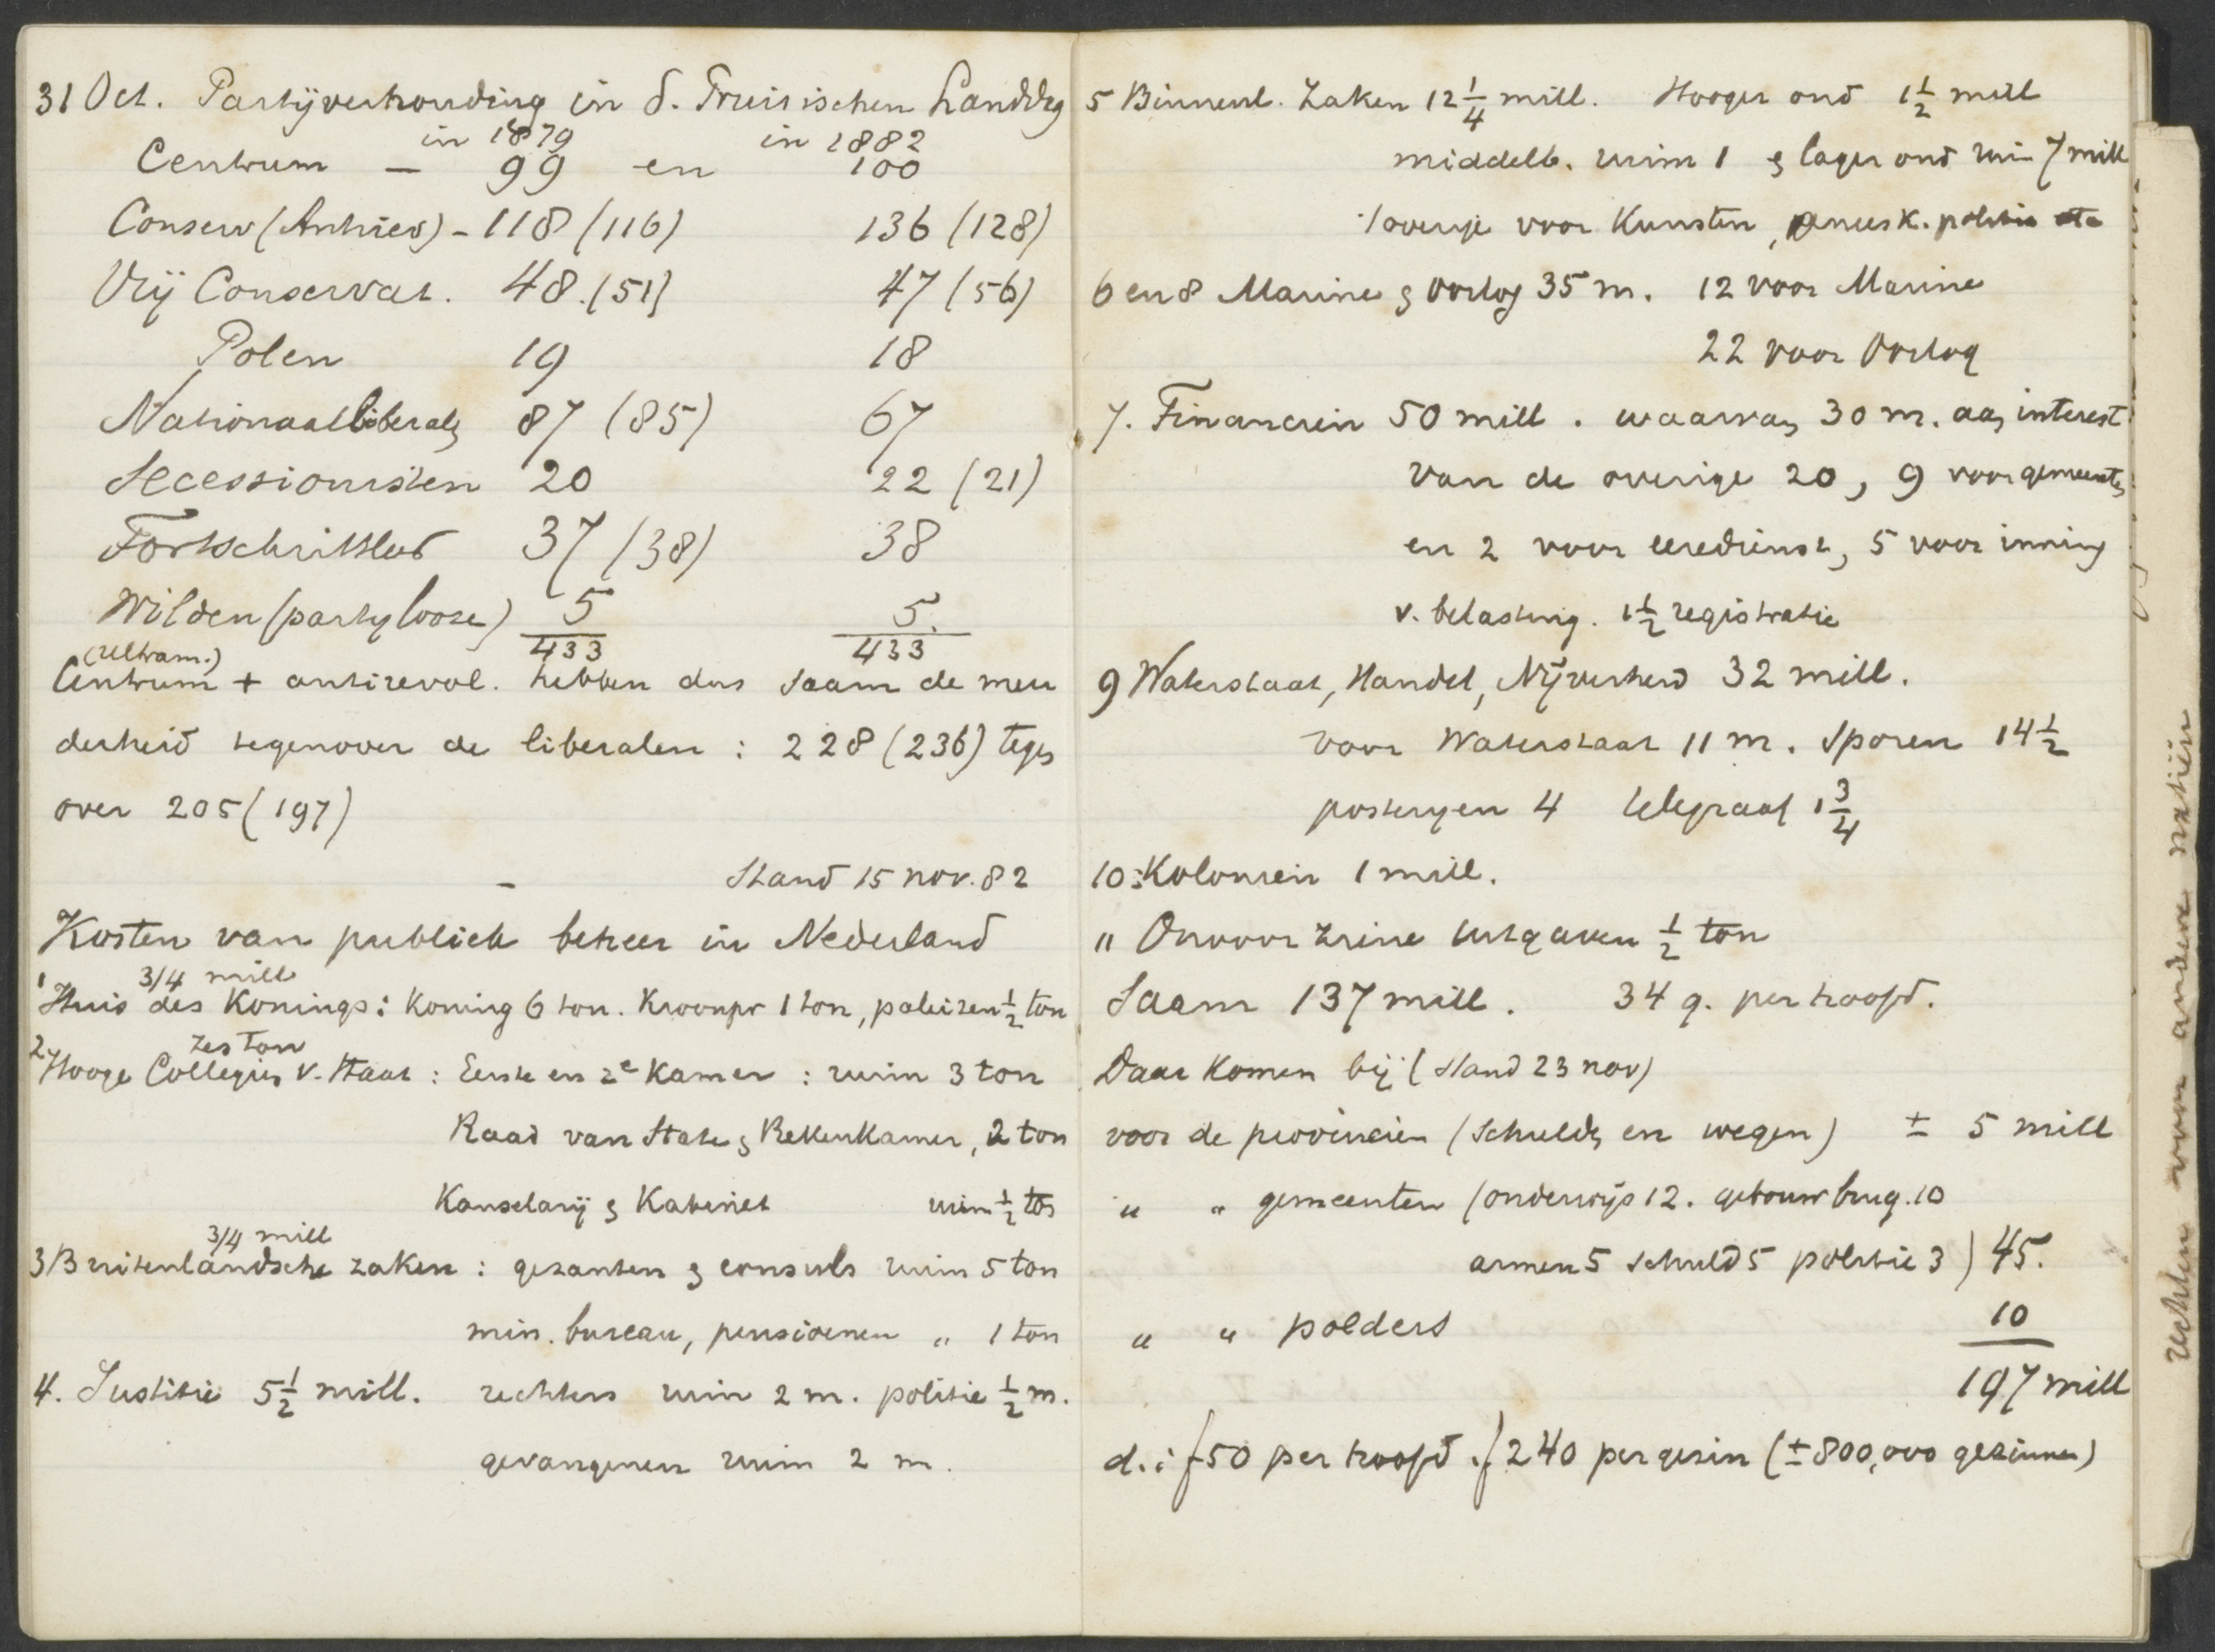 31 Oct. Partijverhouding in d. Pruisischen Landdag
in 1879 in 1882
Centrum — 99 en 100
Conserv (Antirev) - 118 (116) 136 (128)
Vrij Conservat. 48 (51) 47 (56)
Polen 19 18
Nationaalliberalen 87 (85) 67
Secessionisten 20 22 (21)
Fortschrittler 37 (38) 38
Wilden (partyloose) 5 5.
433 433
(Ultram.)
Centrum + antirevol. hebben dus saam de meer
derheid tegenover de liberalen : 228 (236) tegen
over 205 (197)
— Stand 15 nov. 82
Kosten van publiek beheer in Nederland
3/4 mill
1 Huis des Konings : Koning 6 ton. Kroonpr 1 ton, paleizen ½ ton
zes ton
2 Hooge Collegien v. Staat : Eerste en 2e Kamer : ruim 3 ton
Raad van State & Rekenkamer, 2 ton
Kanselarij & Kabinet ruim ½ ton
3/4 mill
3 Buitenlandsche zaken : gezanten & consuls ruim 5 ton
min. bureau, pensioenen " 1 ton
4. Justitie 5½ mill. rechters ruim 2 m. politie ½ m.
gevangenen ruim 2 m.
5 Binnenl. Zaken 12¼ mill. Hooger ond 1½ mill
middelb. ruim 1 & lager ond ruim 7 mill
'l overige voor Kunsten, geneesk. politie etc
6 en 8 Marine & Oorlog 35 m. 12 voor Marine
22 voor Oorlog
7. Financien 50 mill. waarvan 30 m. aan interest
van de overige 20, 9 voor gemeenten
en 2 voor eeredienst, 5 voor inning
v. belasting. 1½ registratie
9 Waterstaat, Handel, Nijverheid 32 mill.
voor Waterstaat 11 m. Sporen 14½
posterijen 4 telegraaf 1¾
10: Kolonien 1 mill.
" Onvoorziene uitgaven ½ ton
Saam 137 mill. 34 g. per hoofd.
Daar komen bij (Stand 23 nov)
voor de provincien (schulden en wegen) ± 5 mill
" " gemeenten (onderwijs 12. gebouw brug. 10
armen 5 schuld 5 politie 3) 45.
" " polders 10
197 mill
d. i f 50 per hoofd. f 240 per gezin (± 800,000 gezinnen)
rechten voor andere natiën